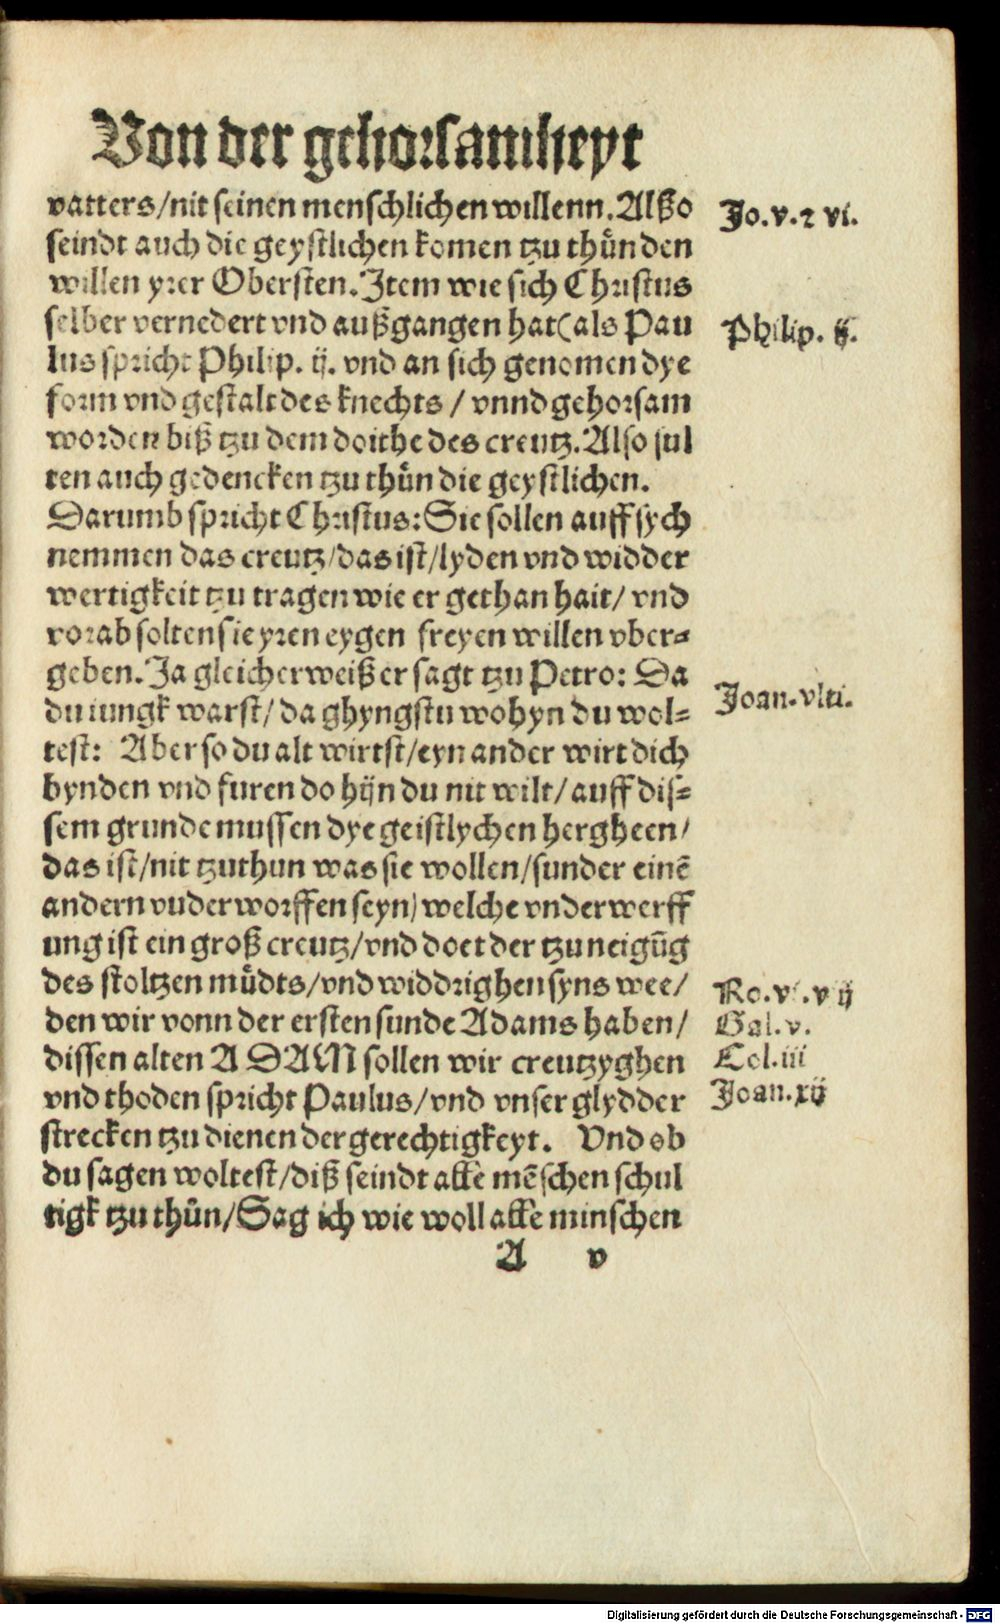 Von der gehorsamheyt
vatters/nit seinen menschlichen willenn. Alßo
Jo.v.ꝛ vi.
seindt auch die geystlichen komen tzu thůn den
willen yrer Obersten. Item wie sich Christus
selber vernedert vnd außgangen hat(als Pau
Philip. ij.
lus spricht Philip. ij. vnd an sich genomen dye
form vnd gestalt des knechts / vnnd gehorsam
worden biß tzu dem doithe des creutz. Also sul
ten auch gedencken tzu thůn die geystlichen.
Darumb spricht Christus: Sie sollen auff sych
nemmen das creutz/das ist/lyden vnd widder
wertigkeit tzu tragen wie er gethan hait/ vnd
vorab solten sie yren eygen freyen willen vber=
geben. Ja gleicherweiß er sagt tzu Petro: Da
Joan.vlti.
du iungk warst/ da ghyngstu wohyn du wol=
test: Aber so du alt wirtst/eyn ander wirt dich
bynden vnd furen do hijn du nit wilt/ auff dis=
sem grunde mussen dye geistlychen hergheen/
das ist/nit tzuthun was sie wollen/sunder einē
andern vuderworffen seyn) welche vnderwerff
ung ist ein groß creutz/vnd doet der tzuneigūg
des stoltzen můdts/vnd widdrighen syns wee/
Ro.vi.vij
den wir vonn der ersten sunde Adams haben/
Gal.v.
dissen alten ADAM sollen wir creutzyghen
Col.iii
vnd thoden spricht Paulus/vnd vnser glydder
Joan.xij
strecken tzu dienen der gerechtigkeyt. Vnd ob
du sagen woltest/diß seindt alle mēschen schul
tigk tzu thůn/Sag ich wie woll alle minschen
A v
Digitalisierung gefördert durch die Deutsche Forschungsgemeinschaft - DFG